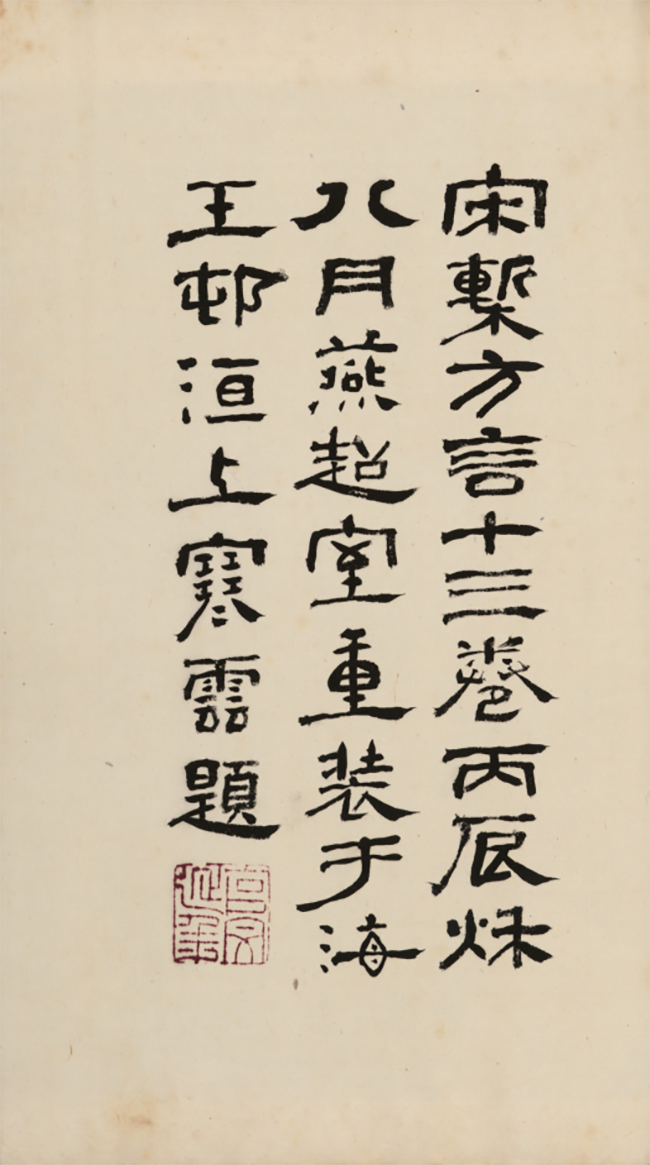 宋槧方言十三卷丙辰秌
八月燕超室重装于海
王邨洹上寒雲題